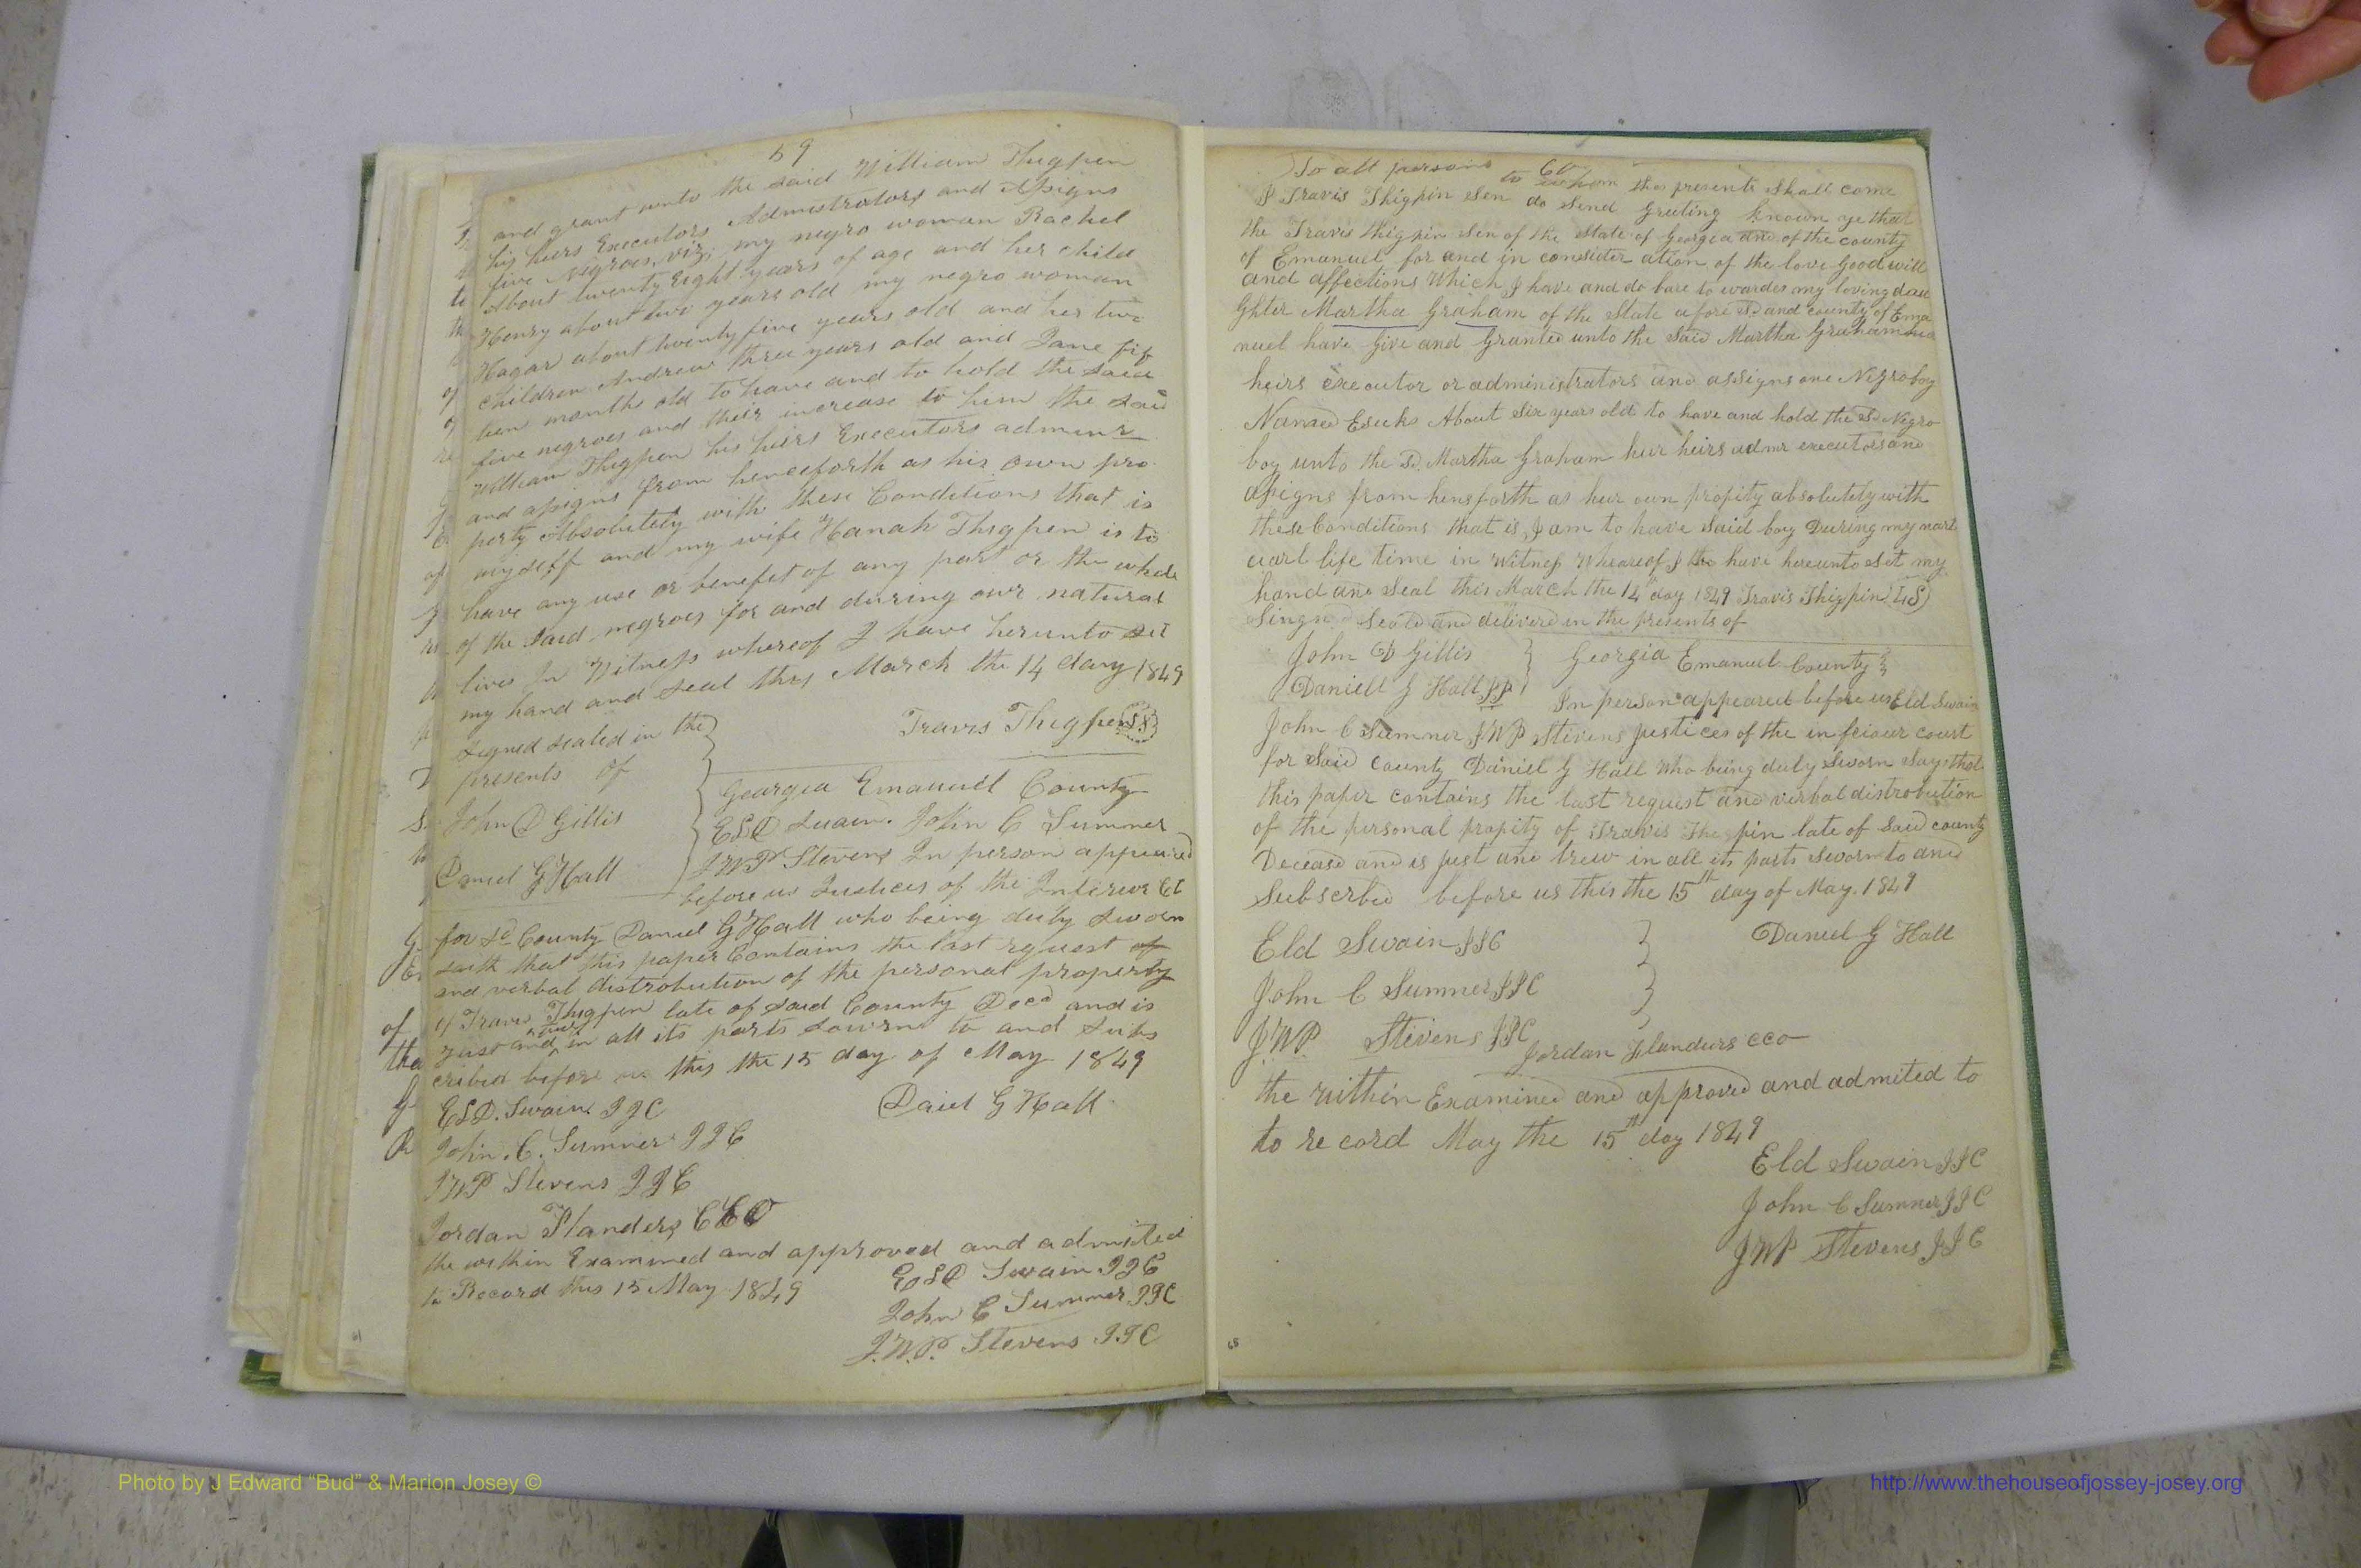 59
and grant unto the said William Thigpen
his heirs Executors Admistrators and Assigns
five Negroes, viz, my negro woman Rachel
About twenty Eight years of age and her child
Henry about two years old my negro woman
Hagar about twenty five years old and her two
children Andrew three years old and Jane fif
teen months old to have and to hold the said
five negroes and their increase to him the said
William Thigpen his heirs Executors adminr
and assigns from henceforth as his own pro
perty Absolutely with these Conditions that is
myself and my wife Hanah Thigpen is to
have any use or benefit of any part or the whole
of the said negroes for and during our natural
lives In Witness whereof I have herunto set
my hand and seal this March the 14 day 1849
Travis Thigpen
signed sealed in the
presents of
John D Gillis
Daniel G Hall
Georgia Emanuel County
John C Sumner
J W P Stevens In person appeared
before us Justices of the
for sd County Daniel G Hall who being duly sworn
saith that this paper Contains the last request of
and verbal distrobution of the personal property
of Travis Thigpen late of said County Decd and is
just and true in all its parts sworn to and subs
cribed before us this the 15 day of May 1849
Swain J J C
Daniel G Hall
John. C. Sumner J J C
J W P Stevens J J C
Jordan Flanders C C O
the within Examined and approved and admited
to Record this 15 May 1849
Swain J J C
John C Sumner J J C
J. W. P. Stevens J J C
60
To all persons to whom thes presents shall come
I Travis Thigpin Sen do Send Greeting known ye that
the Travis thigpin Sen of the State of Georgia and of the county
of Emanuel for and in consider ation of the love Good will
and affections Which I have and do bare to wardes my loving dau
ghter Martha Graham of the State afore sd and county of Ema
nuel have Give and Granted unto the Said Martha Graham
heirs executor or administrators and assigns one Negro boy
Named About Six years old to have and hold the Sd Negro
boy unto the Sd Martha Graham hur heirs admr executors and
assigns from hensforth as hur own propity absolutely with
these Conditions that is I am to have Said boy During my nart
life time in Witness Wheareof I have hereunto Set my
hand and Seal this March the 14 day 1849 Travis Thigpin (LS)
Singned Seald and deliverd in the presents of
John D Gillis
Daniell G Hall JP
Georgia Emanuel County
In person appeared before us Eld Swain
John C Sumner J W P Stivens justices of the court
for Said County Daniel G Hall Who being duly Sworn Says that
this paper contains the last request and virbal distrobution
of the personal propity of Travis Thigpin late of Said county
Deceasd and is just and trew in all its parts Sworn to and
Subscrbed before us this the 15th day of May. 1849
Eld Swain JJC
Daniel G Hall
John C Sumner JJC
J W P Stevens JJC
Jordan Flandurs cco
the within Examined and approved and admited to
to re cord May the 15th day 1849
Eld Swain JJC
John C Sumner JJC
J W P Stevens JJC
Photo by J Edward “Bud” & Marion Josey ©
http://www.thehouseofjossey-josey.org